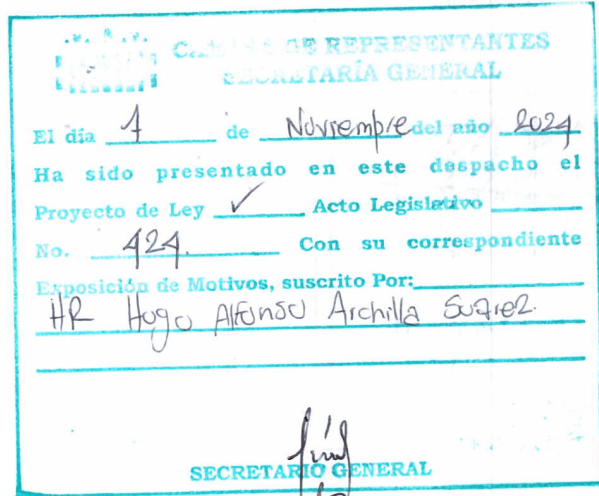 CÁMARA DE REPRESENTANTES
SECRETARÍA GENERAL
El día 7 de Noviembre del año 2024
Ha sido presentado en este despacho el
Proyecto de Ley ✓ Acto Legislativo
No. 424. Con su correspondiente
Exposición de Motivos, suscrito Por:
HR Hugo Alfonso Archila Suárez.
SECRETARIO GENERAL